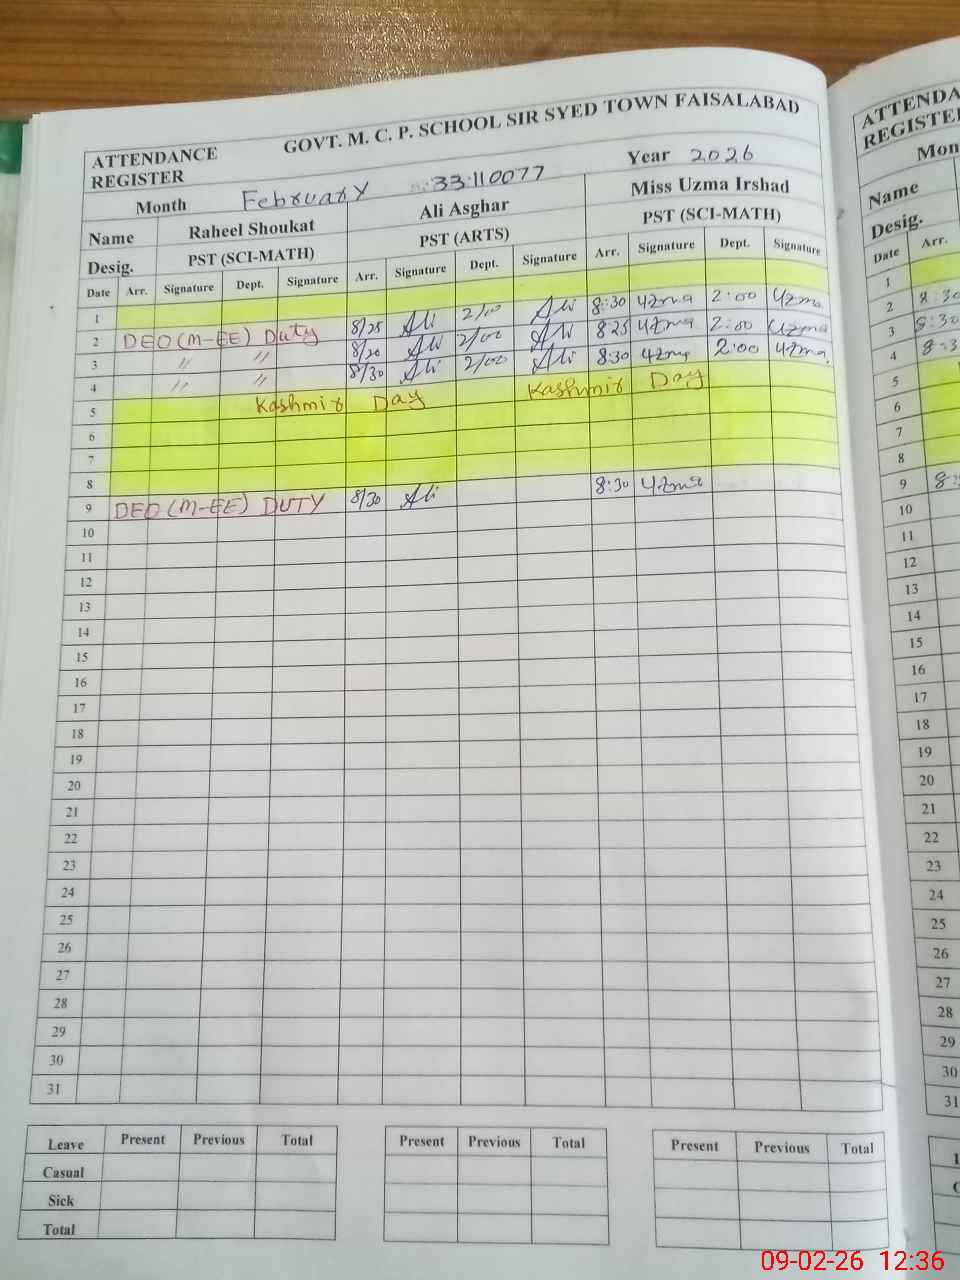 ATTENDANCE REGISTER GOVT. M. C. P. SCHOOL SIR SYED TOWN FAISALABAD
Month February 33110077 Year 2026
Name Raheel Shoukat Ali Asghar Miss Uzma Irshad
Desig. PST (SCI-MATH) PST (ARTS) PST (SCI-MATH)
Date Arr. Signature Dept. Signature Arr. Signature Dept. Signature Arr. Signature Dept. Signature
1
2 DEO (M-EE) Duty 8/25 Ali 2/00 Ali 8:30 Uzma 2:00 Uzma
3 〃 〃 8/20 Ali 2/00 Ali 8:25 Uzma 2:00 Uzma
4 〃 〃 8/30 Ali 2/00 Ali 8:30 Uzma 2:00 Uzma
5 Kashmir Day Kashmir Day
6
7
8
9 DEO (M-EE) DUTY 8/30 Ali 8:30 Uzma
10
11
12
13
14
15
16
17
18
19
20
21
22
23
24
25
26
27
28
29
30
31
Leave Present Previous Total Present Previous Total Present Previous Total
Casual
Sick
Total
ATTENDA
REGISTE
Mon
Name
Desig.
Date Arr.
1
2 8:30
3 8:30
4 8:3
5
6
7
8
9 8:
10
11
12
13
14
15
16
17
18
19
20
21
22
23
24
25
26
27
28
29
30
31
09-02-26 12:36